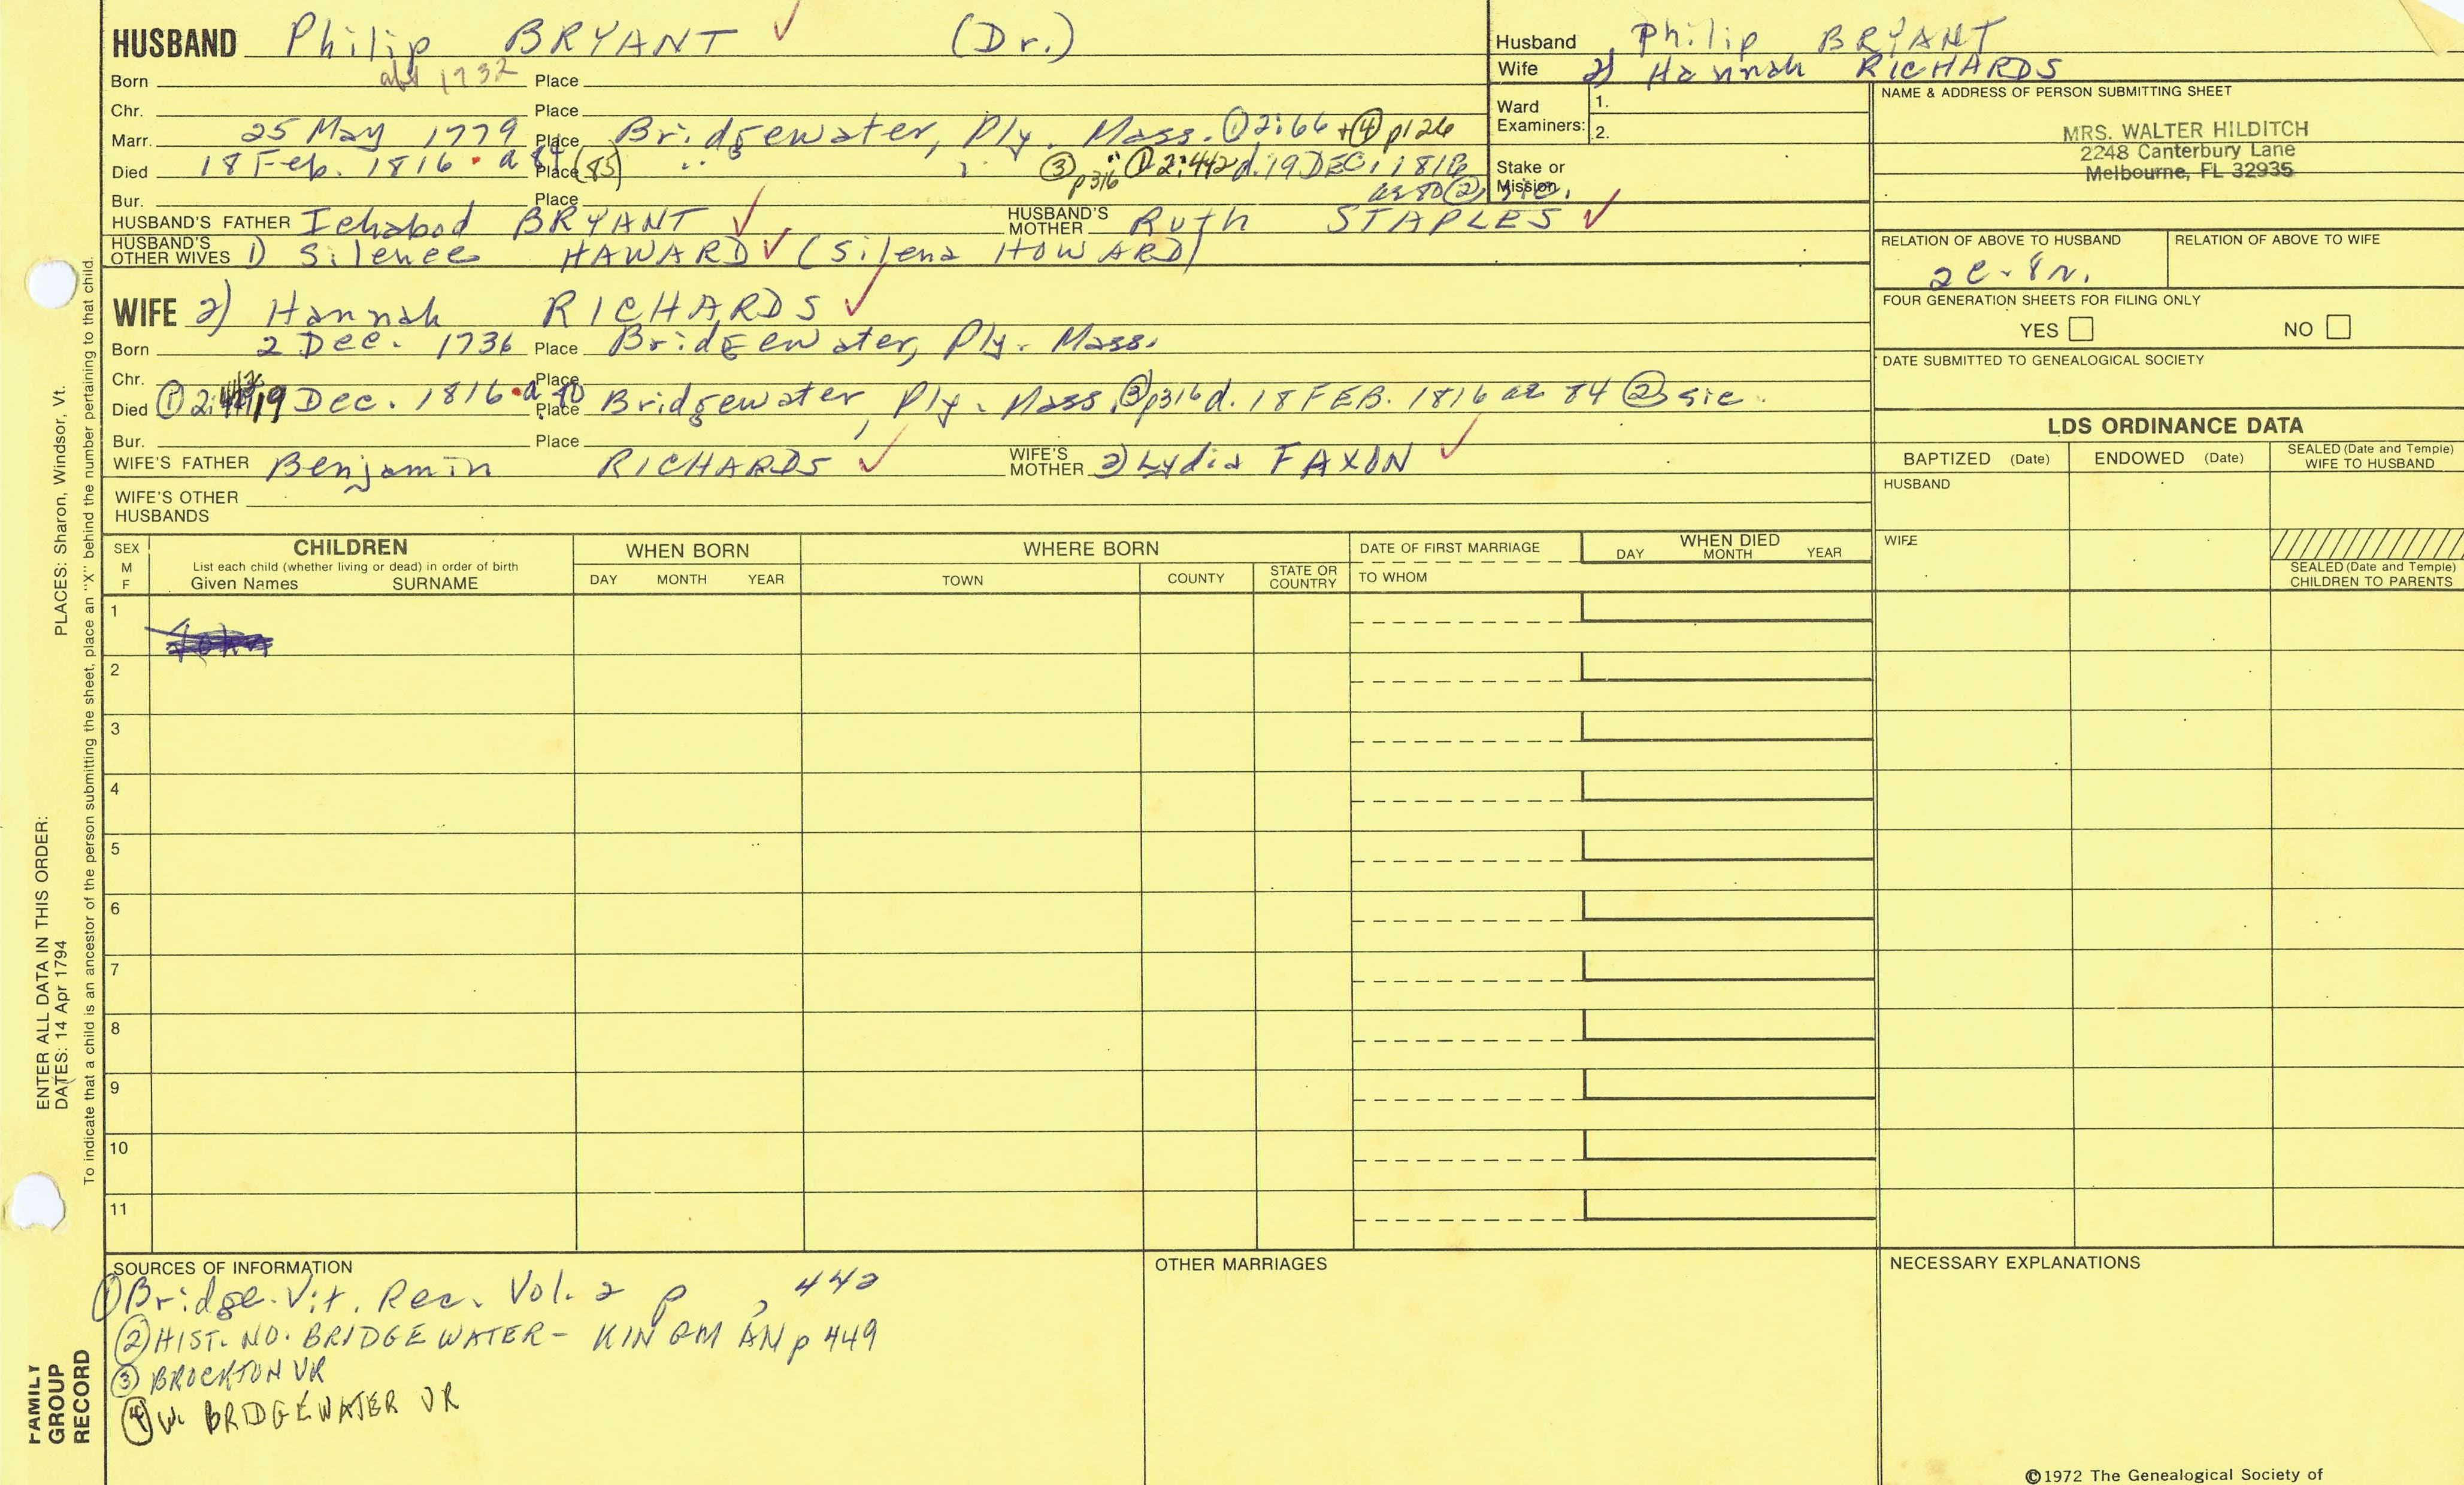 HUSBAND Philip BRYANT ✓ (Dr.)
Born abt 1732 Place
Chr. Place
Marr. 25 May 1779 Place Bridgewater, Ply. Mass. ① 2:66 + ④ p126
Died 18 Feb. 1816 · a 84 (85) Place " " ③ p316 " ① 2:442 d. 19 DEC. 1816
ae 80 ② sic.
Bur. Place
HUSBAND'S FATHER Ichabod BRYANT ✓ HUSBAND'S MOTHER Ruth STAPLES ✓
HUSBAND'S OTHER WIVES 1) Silence HAWARD ✓ (Silena HOWARD)
Husband Philip BRYANT
Wife 2) Hannah RICHARDS
Ward Examiners: 1.
2.
Stake or Mission
NAME & ADDRESS OF PERSON SUBMITTING SHEET
MRS. WALTER HILDITCH
2248 Canterbury Lane
Melbourne, FL 32935
RELATION OF ABOVE TO HUSBAND
2c-8r.
RELATION OF ABOVE TO WIFE
FOUR GENERATION SHEETS FOR FILING ONLY
YES NO
DATE SUBMITTED TO GENEALOGICAL SOCIETY
WIFE 2) Hannah RICHARDS ✓
Born 2 Dec. 1736 Place Bridgewater, Ply. Mass.
Chr. Place
Died ① 2: 19 Dec. 1816 · a 80 Place Bridgewater, Ply. Mass. ③ p316 d. 18 FEB. 1816 ae 84 ② sic.
Bur. Place
WIFE'S FATHER Benjamin RICHARDS ✓ WIFE'S MOTHER 2) Lydia FAXON ✓
WIFE'S OTHER HUSBANDS
LDS ORDINANCE DATA
BAPTIZED (Date) ENDOWED (Date) SEALED (Date and Temple) WIFE TO HUSBAND
HUSBAND
WIFE
SEALED (Date and Temple) CHILDREN TO PARENTS
SEX M F
CHILDREN
List each child (whether living or dead) in order of birth
Given Names SURNAME
WHEN BORN
DAY MONTH YEAR
WHERE BORN
TOWN COUNTY STATE OR COUNTRY
DATE OF FIRST MARRIAGE
TO WHOM
WHEN DIED
DAY MONTH YEAR
1 John
2
3
4
5
6
7
8
9
10
11
SOURCES OF INFORMATION
① Bridge. Vit. Rec. Vol. 2 p , 442
② HIST. NO. BRIDGEWATER - KINGMAN p 449
③ BROCKTON VR
④ W. BRIDGEWATER VR
OTHER MARRIAGES
NECESSARY EXPLANATIONS
©1972 The Genealogical Society of
FAMILY GROUP RECORD
ENTER ALL DATA IN THIS ORDER:
DATES: 14 Apr 1794
PLACES: Sharon, Windsor, Vt.
To indicate that a child is an ancestor of the person submitting the sheet, place an "X" behind the number pertaining to that child.